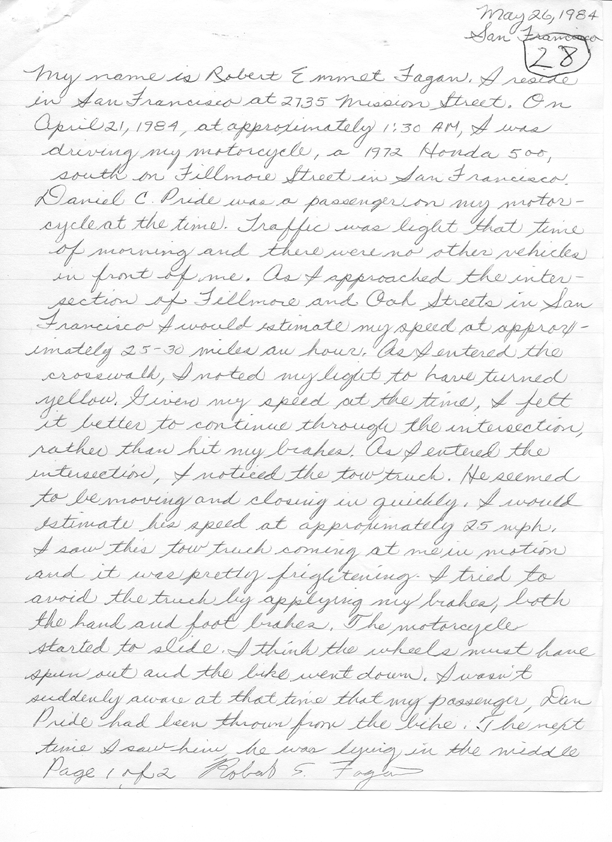 May 26, 1984
San Francisco
28
My name is Robert Emmet Fagan. I reside
in San Francisco at 2735 Mission Street. On
April 21, 1984, at approximately 1:30 AM, I was
driving my motorcycle, a 1972 Honda 500,
south on Fillmore Street in San Francisco.
Daniel C. Pride was a passenger on my motor-
cycle at the time. Traffic was light that time
of morning and there were no other vehicles
in front of me. As I approached the inter-
section of Fillmore and Oak Streets in San
Francisco I would estimate my speed at approx-
imately 25-30 miles an hour. As I entered the
crosswalk, I noted my light to have turned
yellow. Given my speed at the time, I felt
it better to continue through the intersection,
rather than hit my brakes. As I entered the
intersection, I noticed the tow truck. He seemed
to be moving and closing in quickly. I would
estimate his speed at approximately 25 mph.
I saw this tow truck coming at me in motion
and it was pretty frightening. I tried to
avoid the truck by applying my brakes, both
the hand and foot brakes. The motorcycle
started to slide. I think the wheels must have
spun out and the bike went down. I wasn't
suddenly aware at that time that my passenger, Dan
Pride had been thrown from the bike. The next
time I saw him, he was lying in the middle
Page 1 of 2 Robert E. Fagan